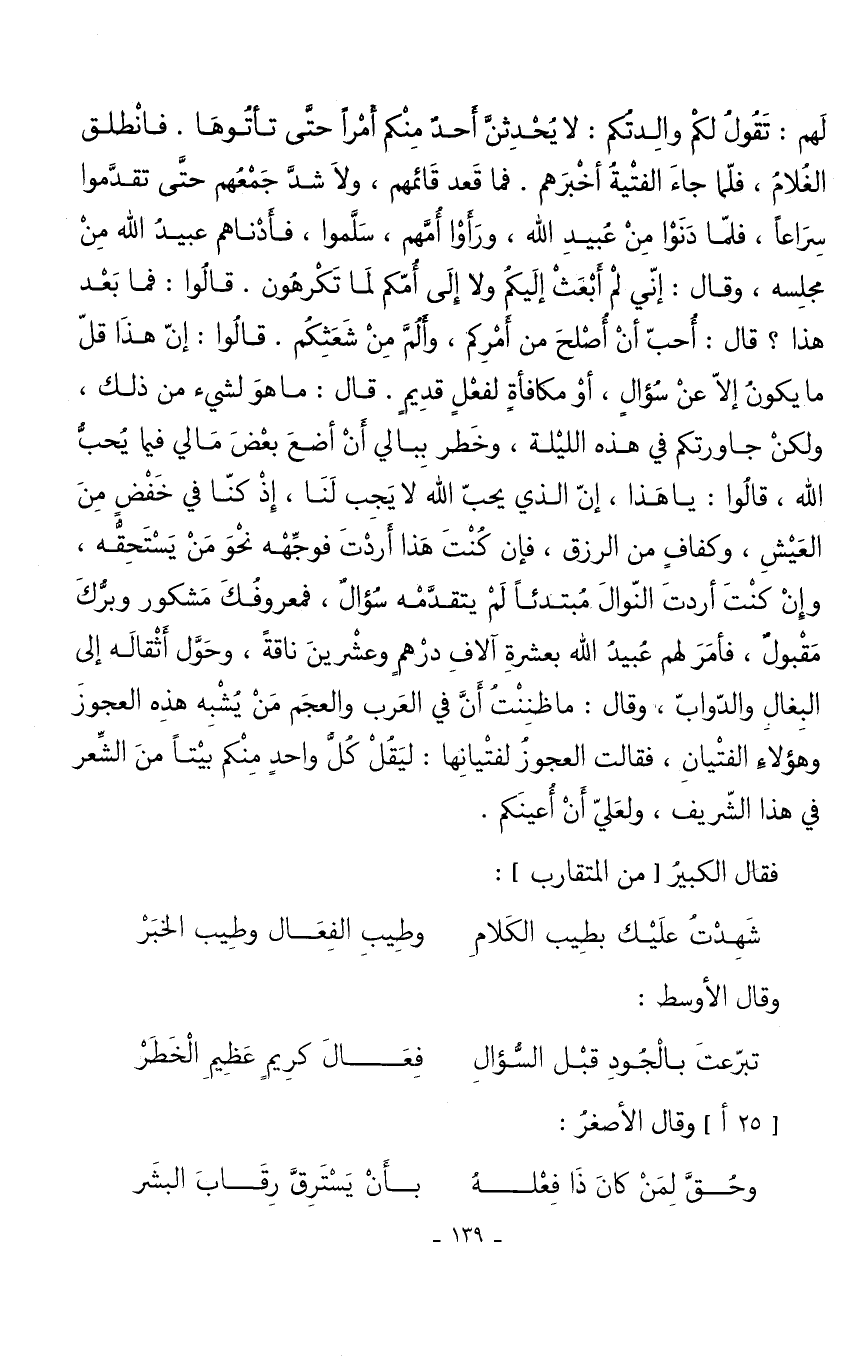 لَهم : تَقُولُ لكمْ والِدتُكم : لا يُحْدِثنَّ أَحدٌ مِنْكم أَمْراً حتَّى تـأتُوهَا . فـانْطلـق
الغُلامُ ، فلّما جاءَ الفتْيةُ أخْبرَهم . فما قَعد قَائمهم ، ولاَ شـذَّ جَمْعُهم حتَّى تقـدَّموا
سِرَاعاً ، فلمّـا دَنَوْا مِنْ عُبيـدِ الله ، ورَأَوْا أُمَّهم ، سَلَّموا ، فـأَدْنـاهم عبيـدُ الله مِنْ
مجلِسه ، وقـال : إنّي لمْ أَبْعَثْ إليكمُ ولا إلَى أُمّكم لمَا تَكْرهُون . قـالُوا : فمـا بَعْـد
هذا ؟ قال : أُحبّ أنْ أُصْلحَ من أَمْرِكم ، وأَلُمَّ مِنْ شَعَثِكُم . قـالُوا : إنّ هـذَا قلّ
ما يكونُ إلاّ عنْ سُؤالٍ ، أوْ مكافأةٍ لفعْلٍ قديمٍ . قـال : مـا هوَ لشيء من ذلـك ،
ولكنْ جـاورتكم في هـذه الليْلـة ، وخَطر بِبـالي أَنْ أضعَ بعْضَ مَـالي فيما يُحبُّ
الله ، قالُوا : يـا هَـذا ، إنّ الـذي يحبّ الله لا يَجِب لَنَـا ، إذْ كنّـا في خَفْضٍ مِنَ
العَيْشِ ، وكفافٍ من الرزق ، فإن كُنْتَ هَذا أَردْتَ فوجِّهْـه نحْوَ مَنْ يَسْتَحِقُّـه ،
وإنْ كنْتَ أردتَ النّوالَ مُبتـدئـاً لَمْ يتقـدَّمْـه سُؤالٌ ، فمعروفُـكَ مَشكور وبِرُّكَ
مَقْبولٌ ، فأمَرَ لهم عُبيدُ الله بعشرةِ آلافِ درْهمٍ وعشْرينَ ناقةً ، وحَوَّل أَثْقالَـه إلى
البغالِ والدّوابّ ، وقال : ما ظننْتُ أنَّ في العَرب والعجَم مَنْ يُشْبِه هذِه العجوزَ
وهؤلاءِ الفتْيانِ ، فقالت العجوزُ لفتْيانِها : ليَقُلْ كُلُّ واحدٍ مِنْكم بيْتـاً منَ الشِّعر
في هذا الشّريف ، ولعَليّ أَنْ أُعينَكم .
فقال الكبيرُ [ من المتقارب ] :
شَهِـدْتُ علَيْـك بطِيبِ الكَلامِ وطِيبِ الفِعَـالِ وطِيبِ الخبَرْ
وقال الأوسط :
تبرّعتَ بـالْجُودِ قبْـل السُّؤالِ فِعَـالَ كرِيمٍ عَظِيمِ الْخَطَرْ
[ ٢٥ أ ] وقال الأصغرُ :
وحُـقَّ لِمَنْ كانَ ذَا فِعْلـهُ بـأَنْ يَسْتَرِقَّ رِقَـابَ البشَر
ـ ١٣٩ ـ